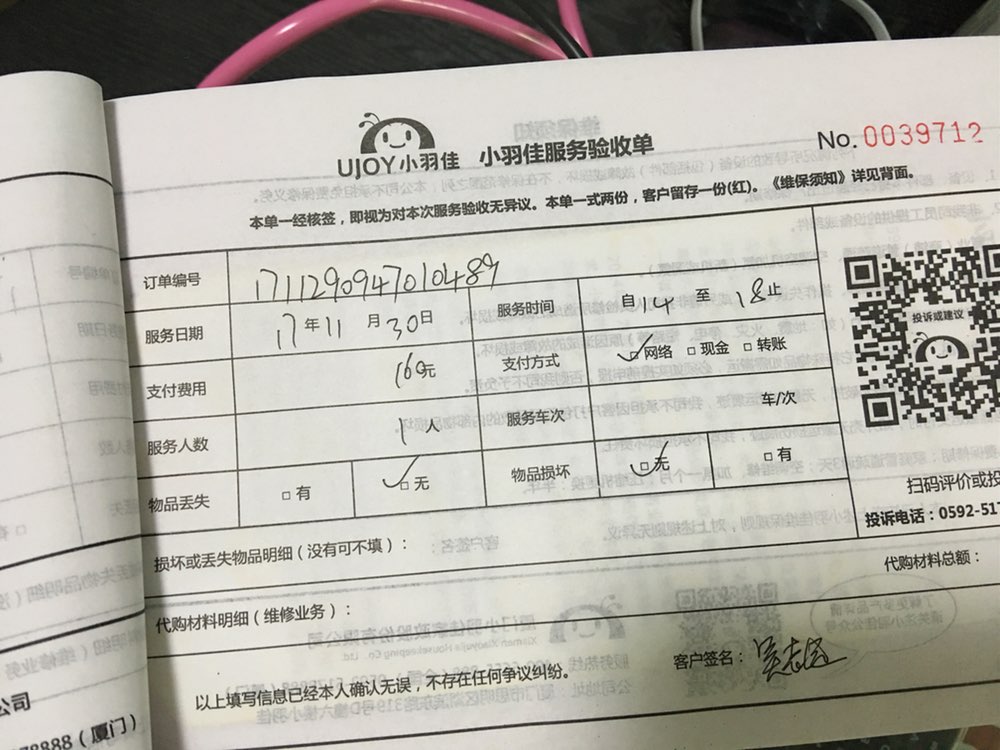 UJOY小羽佳 小羽佳服务验收单 No. 0039712
本单一经核签，即视为对本次服务验收无异议。本单一式两份，客户留存一份(红)。《维保须知》详见背面。
订单编号 1711290947010489
服务日期 17年11月30日 服务时间 自14至18止
支付费用 160元 支付方式 ✓网络 □现金 □转账
服务人数 1人 服务车次 车/次
物品丢失 □有 ✓□无 物品损坏 ✓□无 □有
投诉或建议
扫码评价或投
投诉电话：0592-517
损坏或丢失物品明细（没有可不填）：
代购材料总额：
代购材料明细（维修业务）：
客户签名：
以上填写信息已经本人确认无误，不存在任何争议纠纷。
公司
78888（厦门）